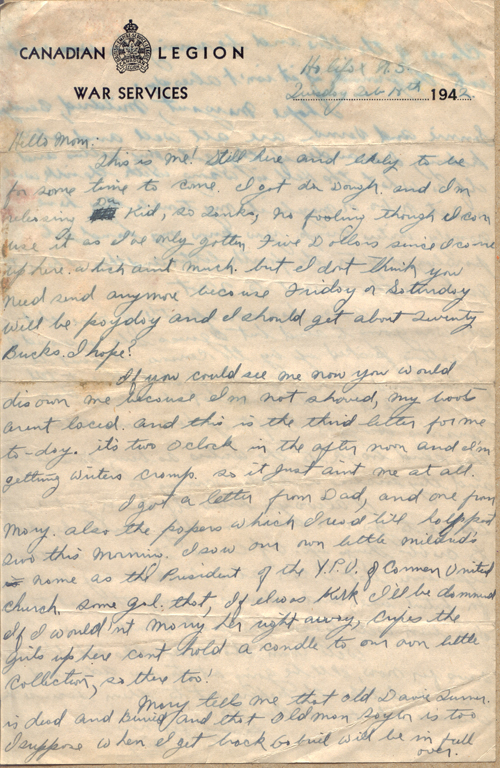 CANADIAN LEGION
WAR SERVICES
N.S.
Tuesday Feb 194
Hello Mom:
This is me! Still here and likely to be
for some time to come. I got da Dough. and I'm
releasing Da Kid, so Tanks, no fooling though I can
use it as I've only gotten Five Dollars since I came
up here. which aint much. but I dont think you
need send anymore because Friday or Saturday
will be payday and I should get about Twenty
Bucks. I hope!
If you could see me now you would
disown me because I'm not shaved, my boots
arent laced. and this is the third letter for me
to-day. its two oclock in the after noon and I'm
getting writers cramp. so it Just aint me at all.
I got a letter from Dad, and one from
Mary. also the papers which I read till half past
two this Morning. I saw our own little
name as the President of the Y.P.U. of United
church some gal. that, If I was Kirk I'll be dammed
If I would'nt Marry her right away, Cripes the
Girls up here cant hold a candle to our own little
Collection, so there too!
Mary tells me that old Dave
is dead and Buried and that Old Man is too
I suppose when I get back will be in full
over.